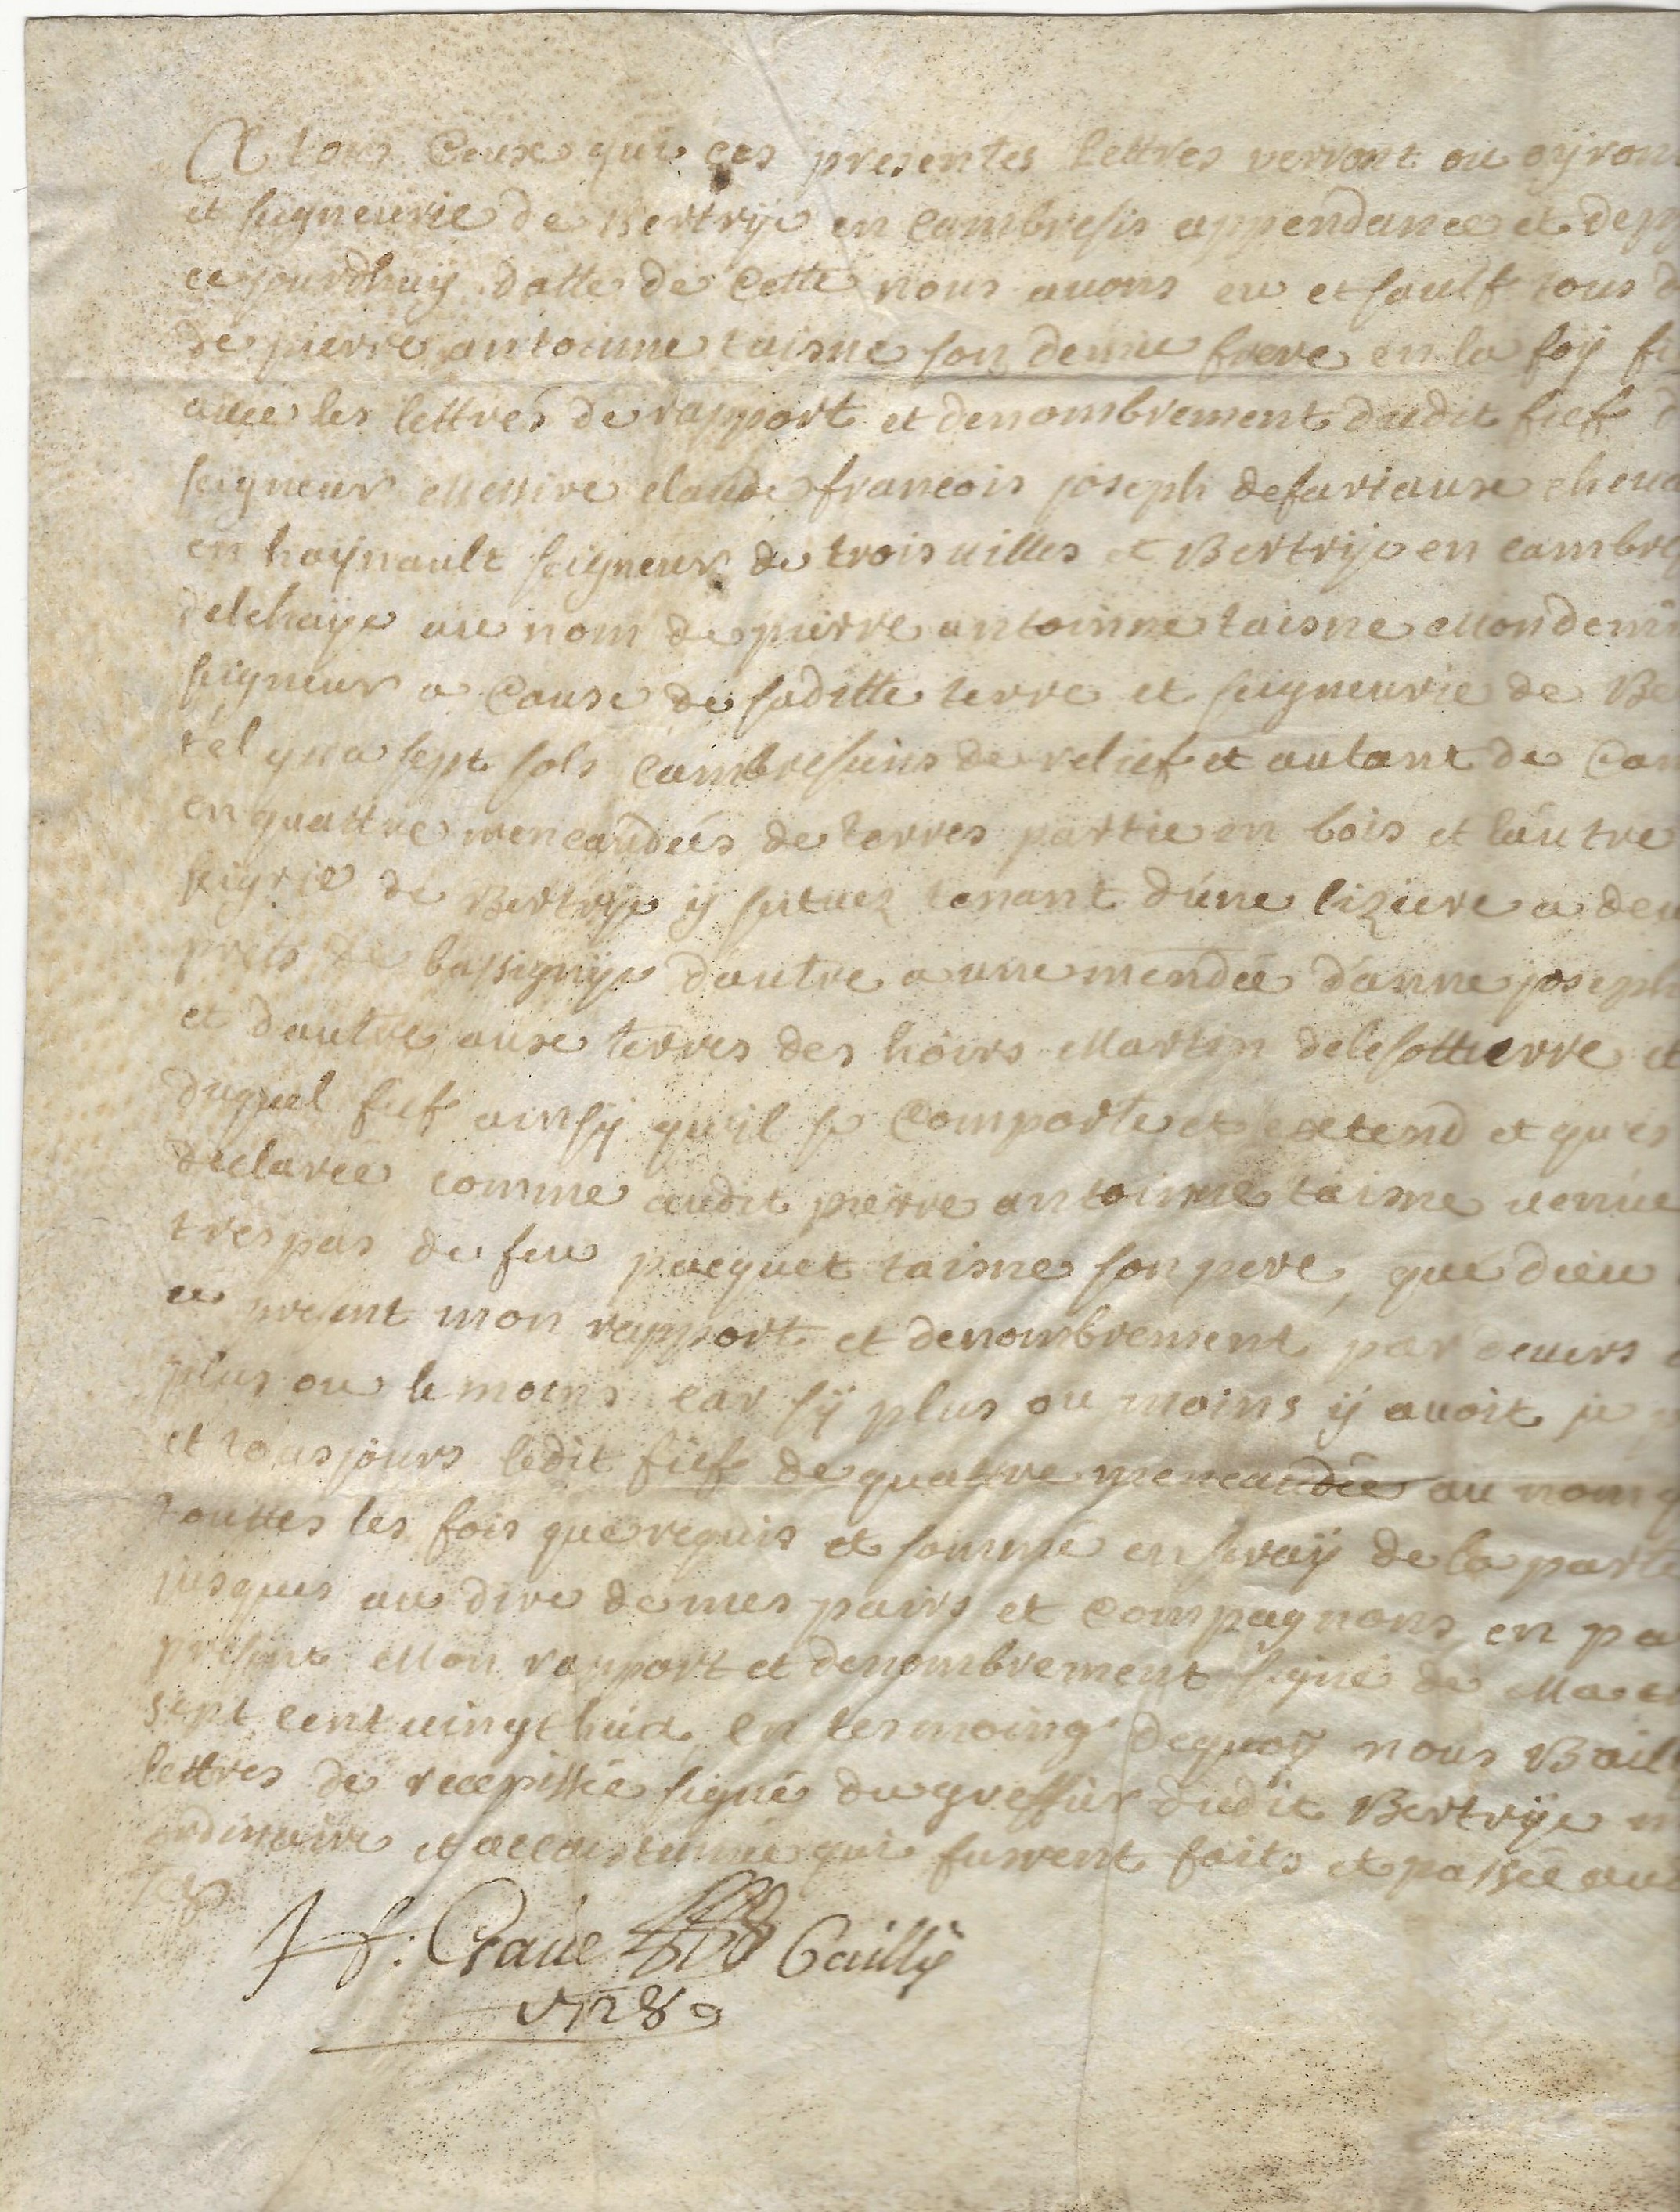 A tous Ceux qui ces presentes lettres verront ou oÿron
et seigneurie de Bertrÿe en Cambresis appendance et dep
ce jourdhuÿ datte de Cette nous auons eu et sauls tous d
de pierre antoinne taisne son demie frere en la foÿ fi
auec les lettres de rapport et denombrement dudit fief d
seigneur Messire claude francois joseph defariaux cheua
en haÿnault seigneur de troisuilles et Bertrÿe en cambre
delehaÿe au nom de pierre antoinne taisne Mon demi
seigneur a Cause de saditte terre et seigneurie de Be
tel qu a sept sols Cambresiens de relief et autant de Cam
en quattre mencaudées de terres partie en bois et lautre
seigrie de Bertrÿe ÿ situez tenant dune liziere a deu
prets de bassignÿe dautre a une mendée danne joseph
et dautre aux terres des hoirs Martin delesotterre et
duquel fief ainsÿ quil se Comporte et extend et ques
declarée comme audit pierre antoinne taisne uenue
trespas de feu pacquet taisne son pere, que dieu
ce present mon rapport et denombrement par deuers
plus ou le moins car sÿ plus ou moins ÿ auoit je
et tousjours ledit fief de quattre mencaudée au nom q
touttes les fois que requis et sommé en seraÿ de la parte
jusques au dire de mes pairs et Compagnons en pa
present Mon rapport et denombrement signé de Mar
sept cent uingt huict en tesmoing dequoÿ nous Bail
lettres de recepissée signé du greffier dudit Bertrÿe
ordinaire et accoustumée qui furent faits et passée au
Craue Baillÿ
1728